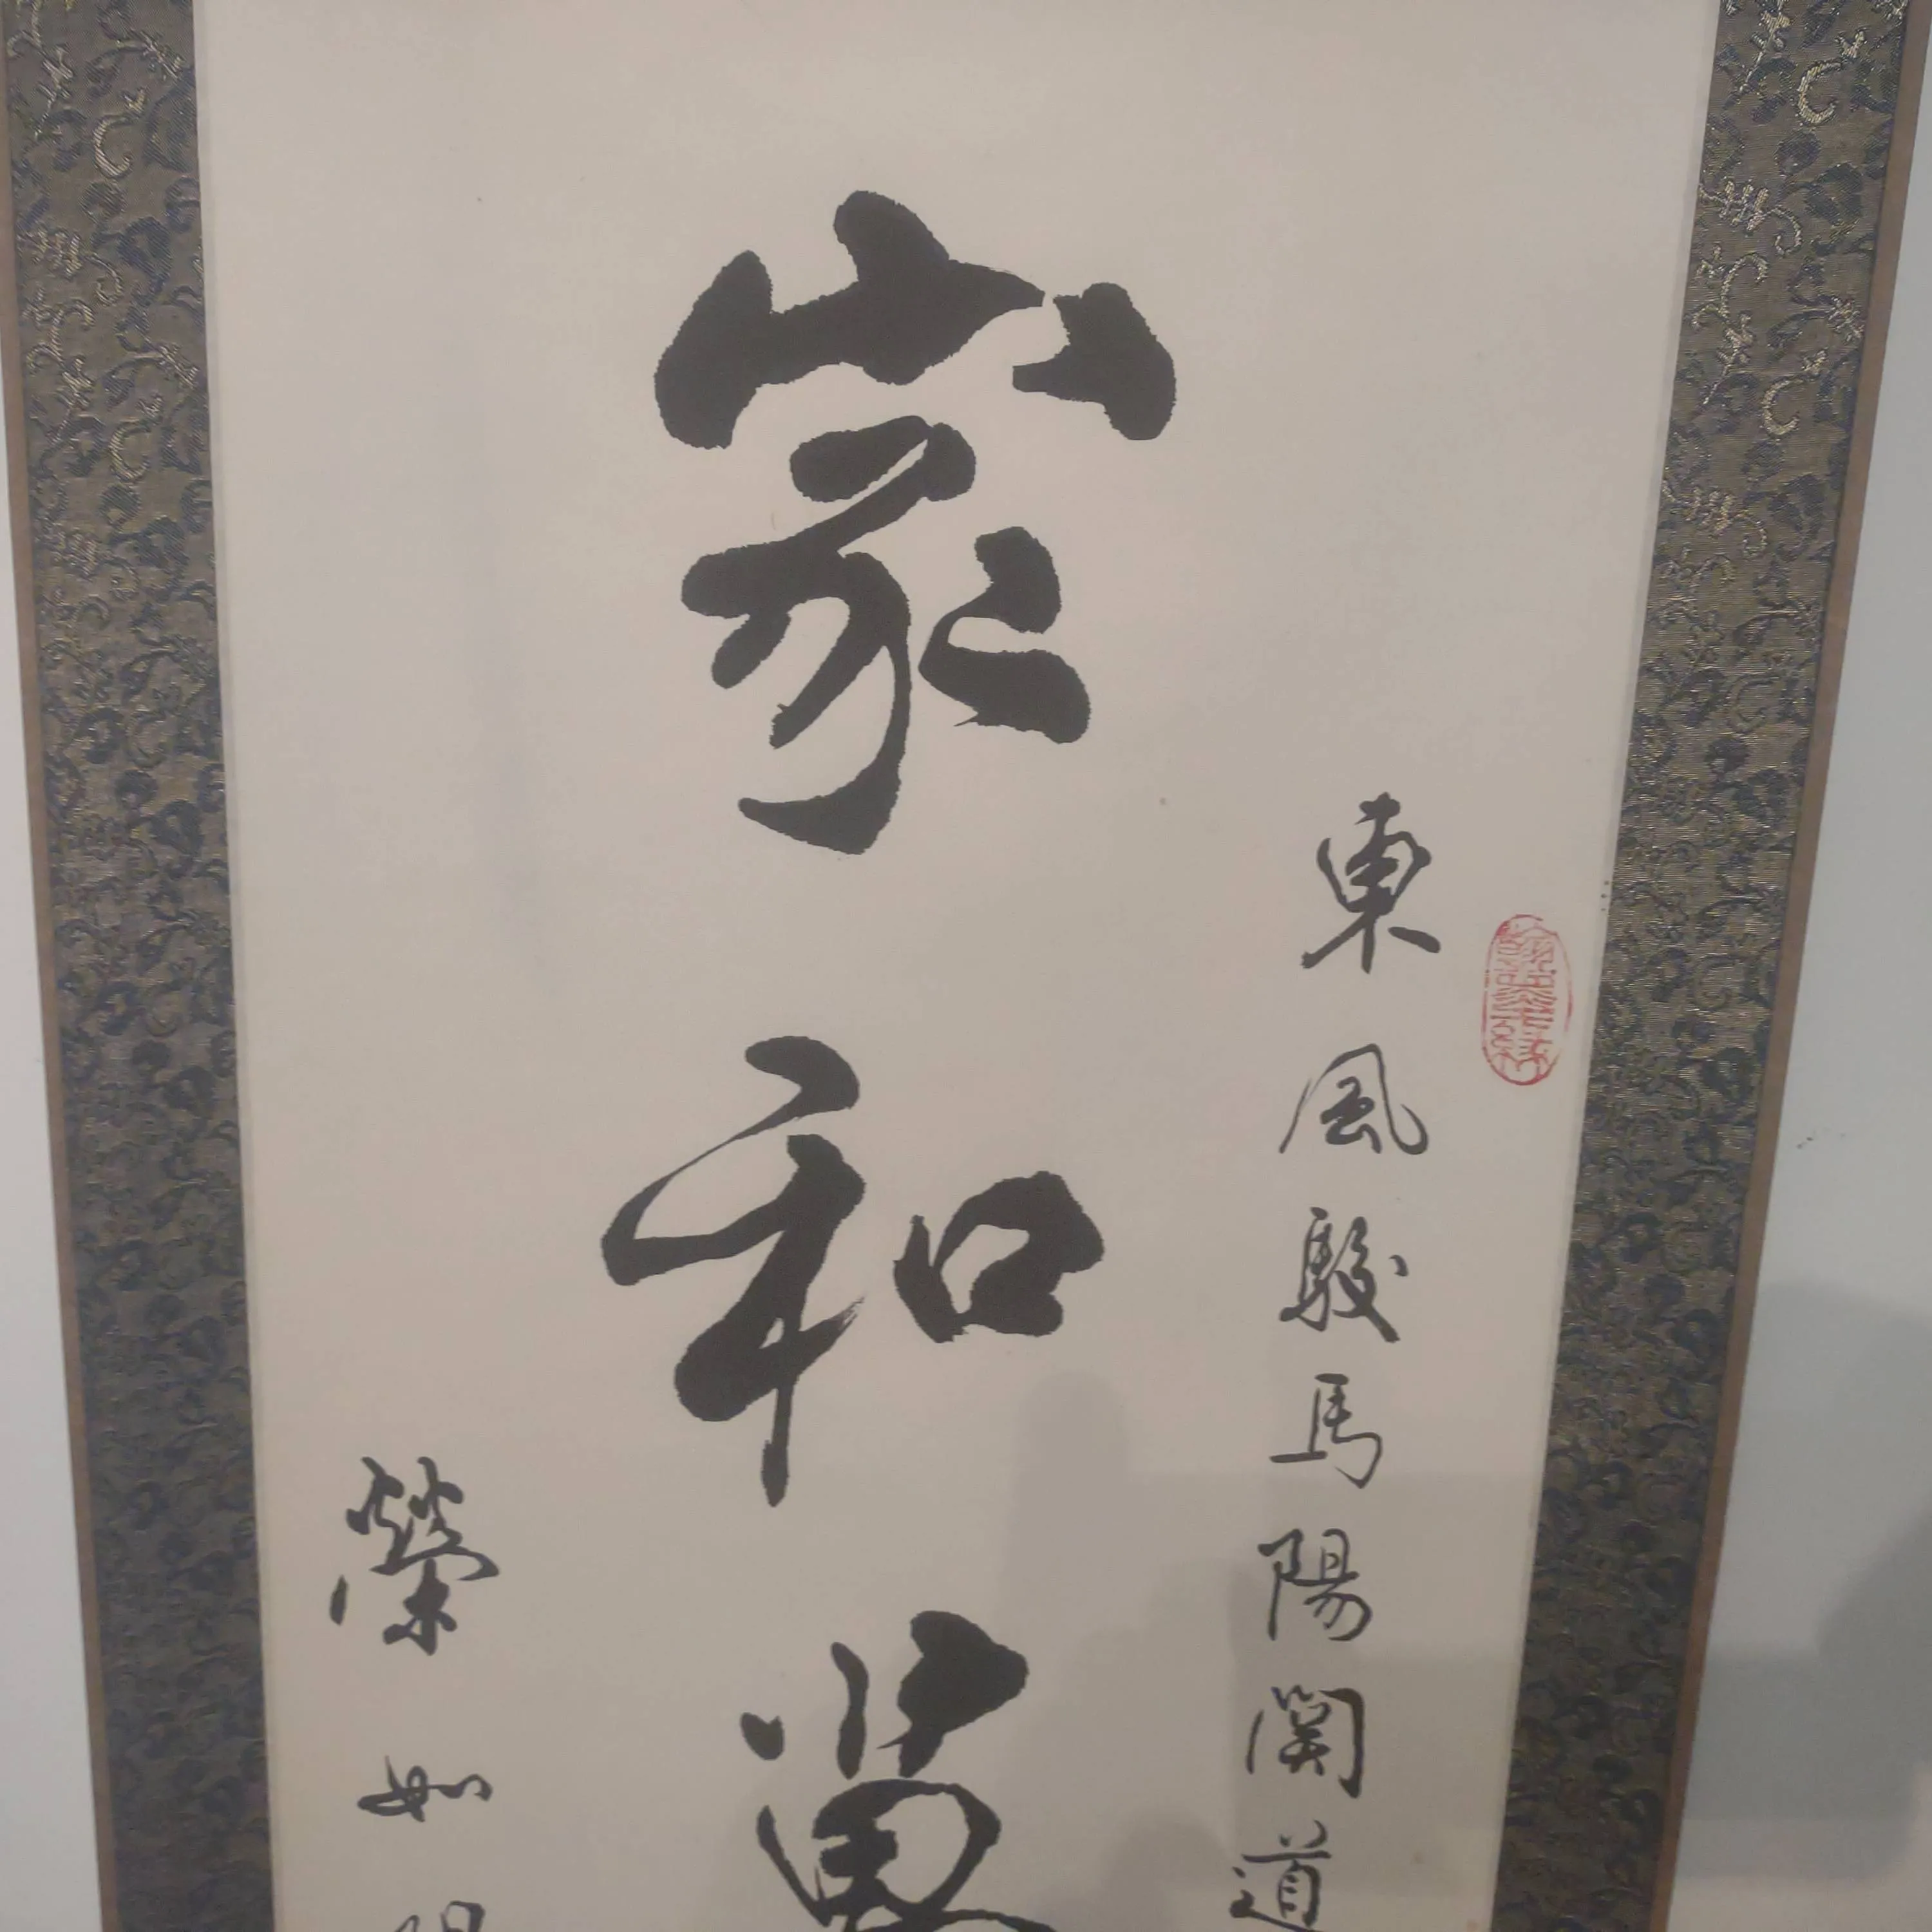 東風駿馬陽関道
家和萬
榮如